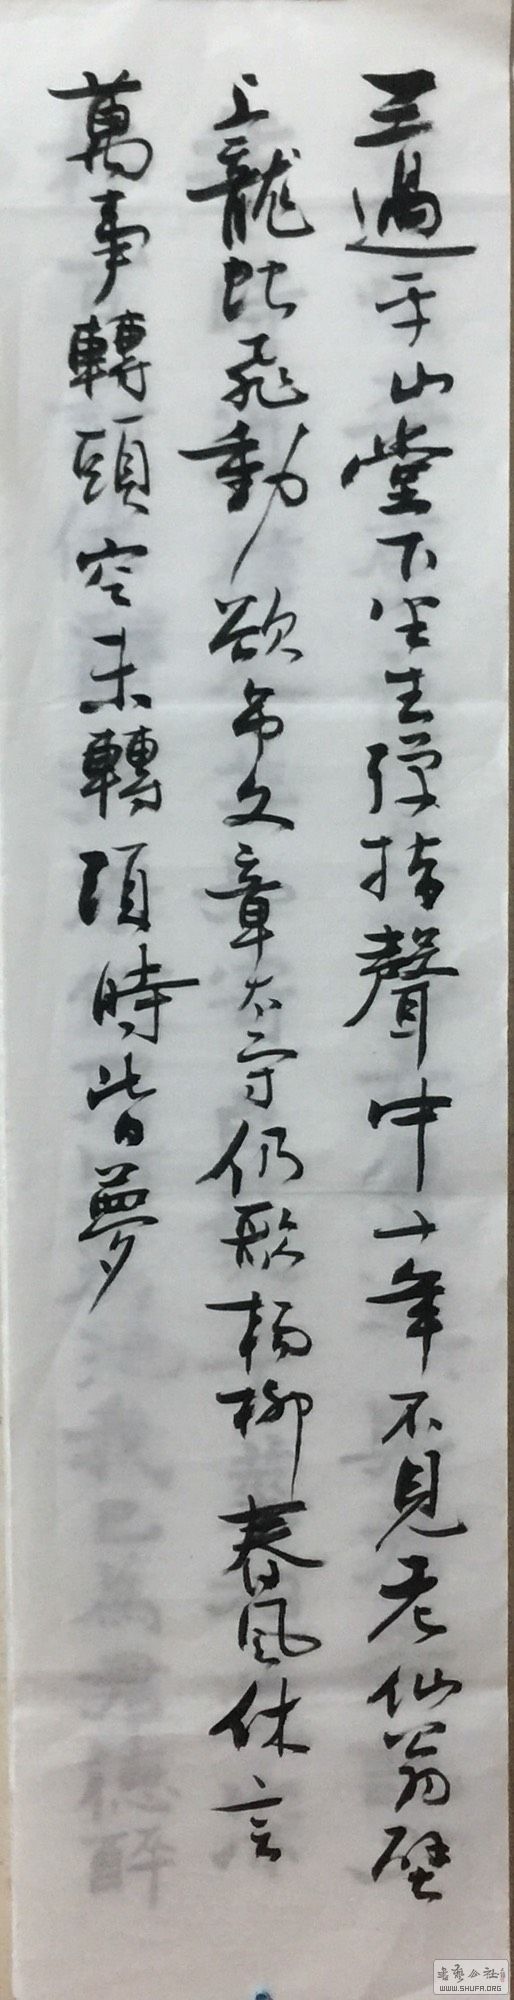 三過平山堂下半生彈指聲中十年不見老仙翁壁
上龍蛇飛動欲吊文章太守仍歌楊柳春風休言
萬事轉頭空未轉頭時皆夢
書藝公社
WWW.SHUFA.ORG